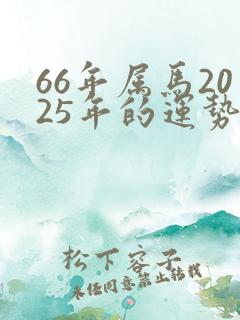 66年属馬20
25年的運勢
松下容子
未经同意禁止转载